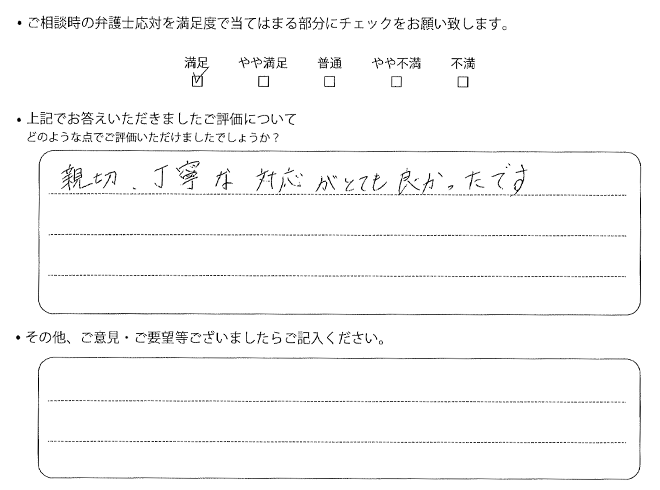 ・ご相談時の弁護士応対を満足度で当てはまる部分にチェックをお願い致します。
満足 やや満足 普通 やや不満 不満
・上記でお答えいただきましたご評価について
どのような点でご評価いただけましたでしょうか？
親切、丁寧な対応がとても良かったです
・その他、ご意見・ご要望等ございましたらご記入ください。